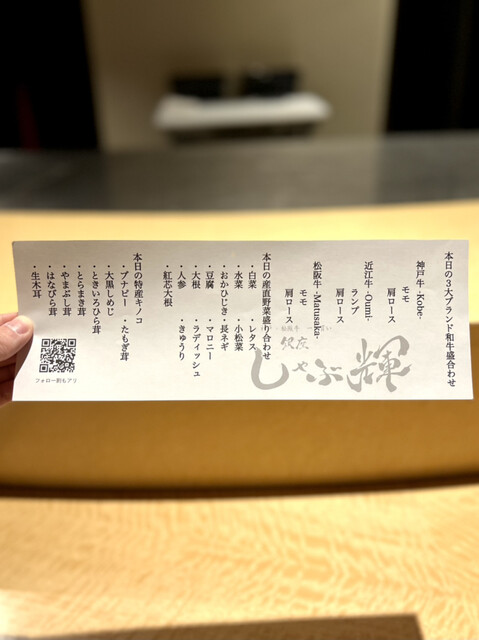 本日の3大ブランド和牛盛合わせ
神戸牛 -Kobe-
モモ
肩ロース
近江牛 -Oumi-
ランプ
肩ロース
松阪牛 -Matusaka-
モモ
肩ロース
しゃぶ輝
本日の産直野菜盛り合わせ
・白菜 ・レタス
・水菜 ・小松菜
・おかひじき ・長ネギ
・豆腐 ・マロニー
・大根 ・ラディッシュ
・人参 ・きゅうり
・紅芯大根
本日の特産キノコ
・ブナピー ・たもぎ茸
・大黒しめじ
・ときいろひら茸
・とらまき茸
・やまぶし茸
・はなびら茸
・生木耳
フォロー割もアリ